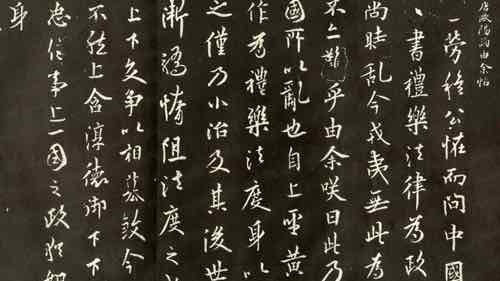 唐歐陽詢由余帖
一勞穆公怪而問中國
書禮樂法律為政
尚時亂今戎夷無此為
不亦難乎由余咲曰此乃
國所以亂也自上聖黃
作為禮樂法度身以
之僅乃小治及其後世
漸驕惰阻法度之
上下交爭以相今
不然上含淳德御下下
忠信事上一國之政猶
身